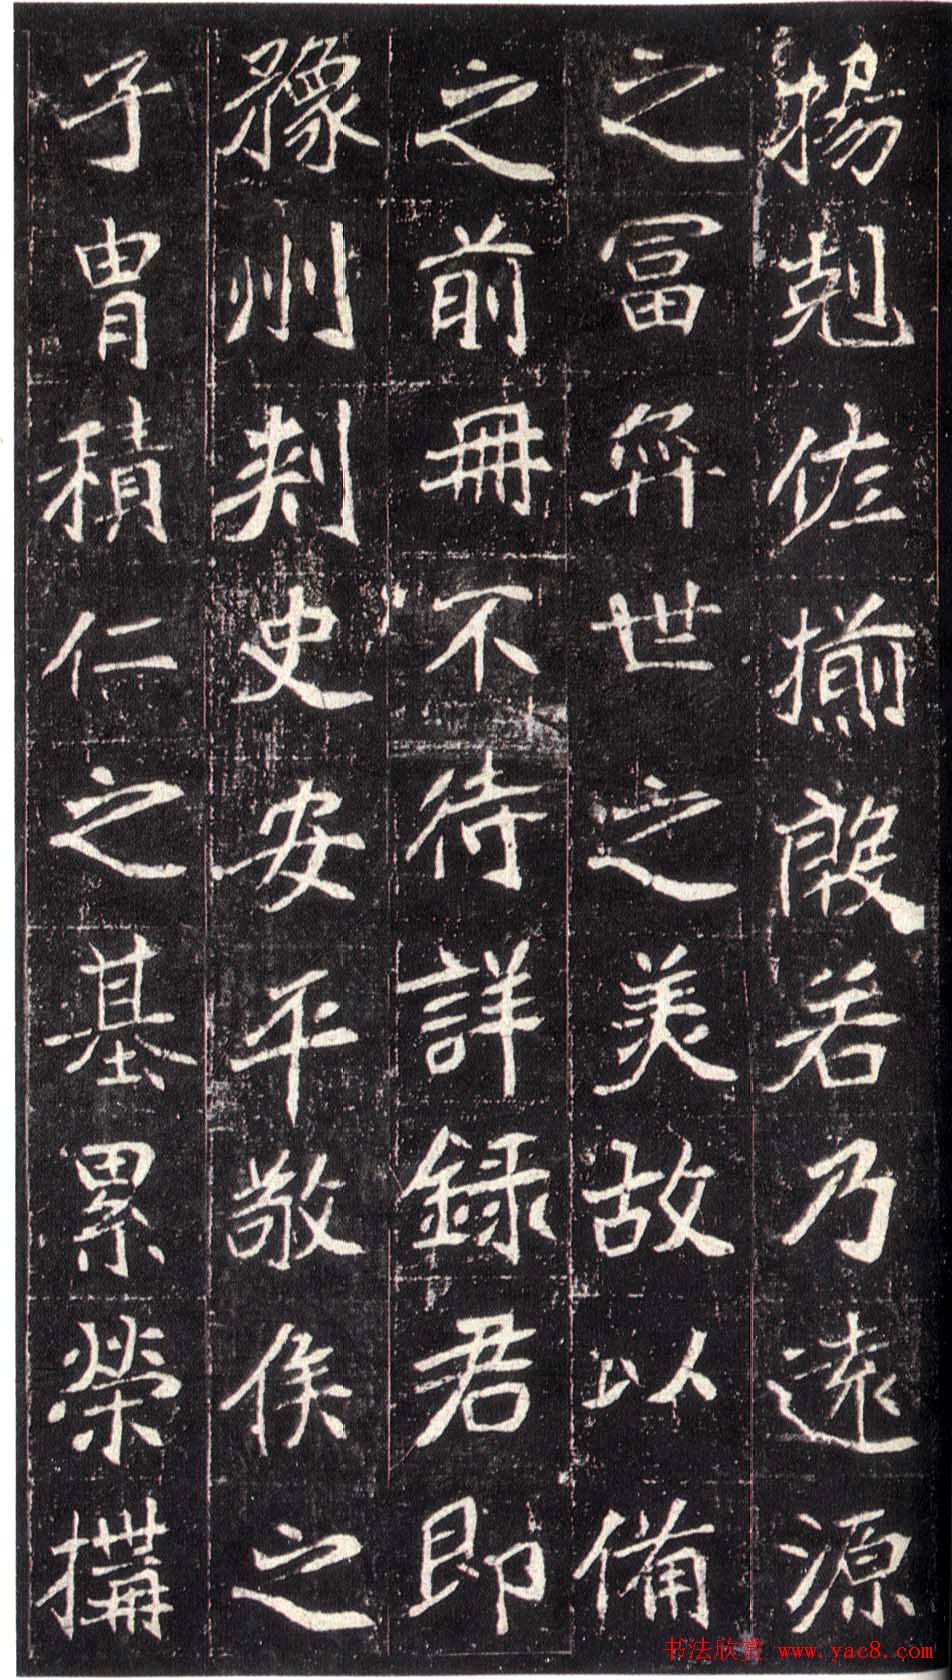 揚剋佐揃殷若乃遠源
之冨弈世之美故以備
之前冊不待詳録君即
豫州刺史安平敬侯之
子胄積仁之基累榮搆
书法欣赏 www.yac8.com